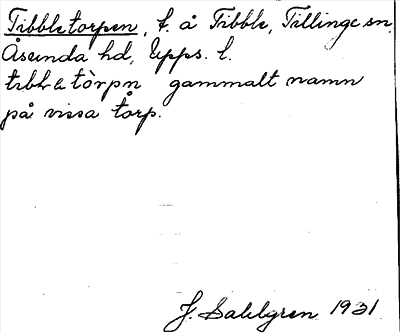 Tibbletorpen, t. å Tibble, Tillinge sn,
Åsunda hd, Upps. l.
tòrpn gammalt namn
på vissa torp.
J. Sahlgren 1931